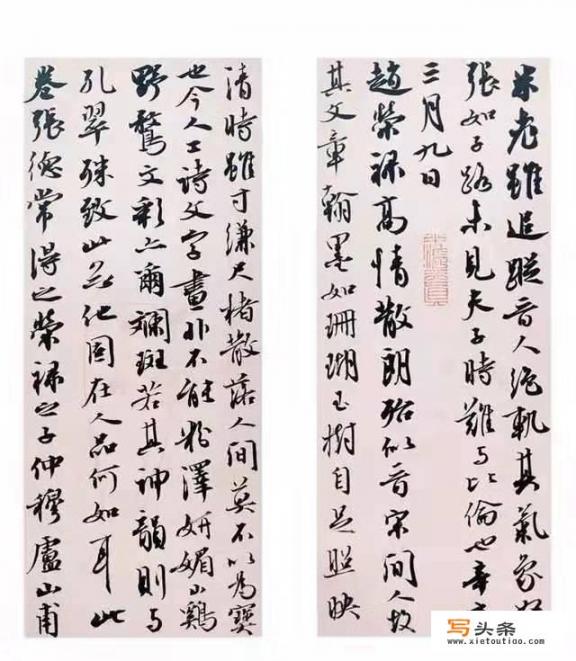 米老雖追蹤晉人絕軌其氣象
張如子路未見夫子時難与比倫也辛
三月九日
趙榮祿高情散朗殆似晉宋間人故
其文章翰墨如珊瑚玉樹自足照映
清時雖寸縑尺楮散落人間莫不以為寶
也今人工詩文字畫非不能粉澤妍媚山鷄
野鶩文彩亦爾斕斑若其神韻則与
孔翠殊致此無他固在人品何如耳此
卷張德常得之榮祿之子仲穆盧山甫
写头条
www.xietoutiao.com